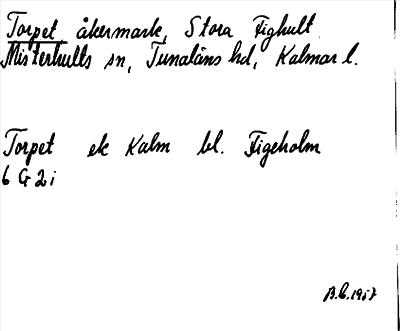 Torpet åkermark, Stora Fighult
Misterhults sn, Tunaläns hd, Kalmar l.
Torpet ek Kalm bl. Figeholm
6 G 2 i
B.C. 1957